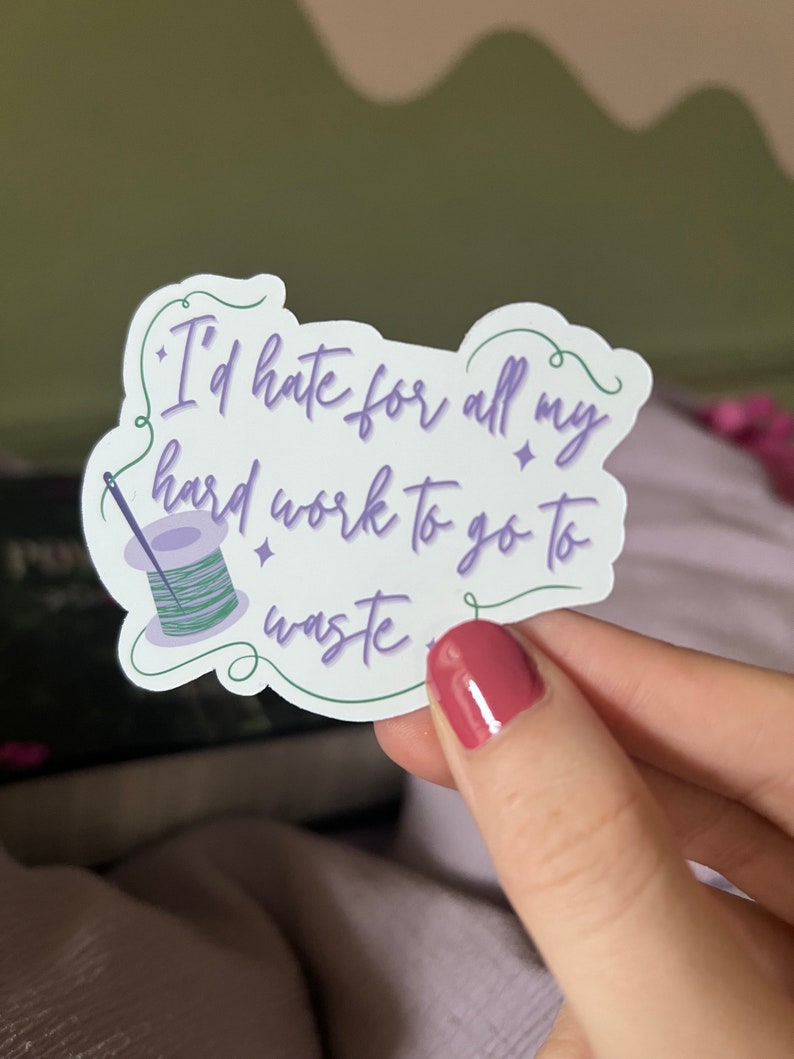 I'd hate for all my
hard work to go to
waste